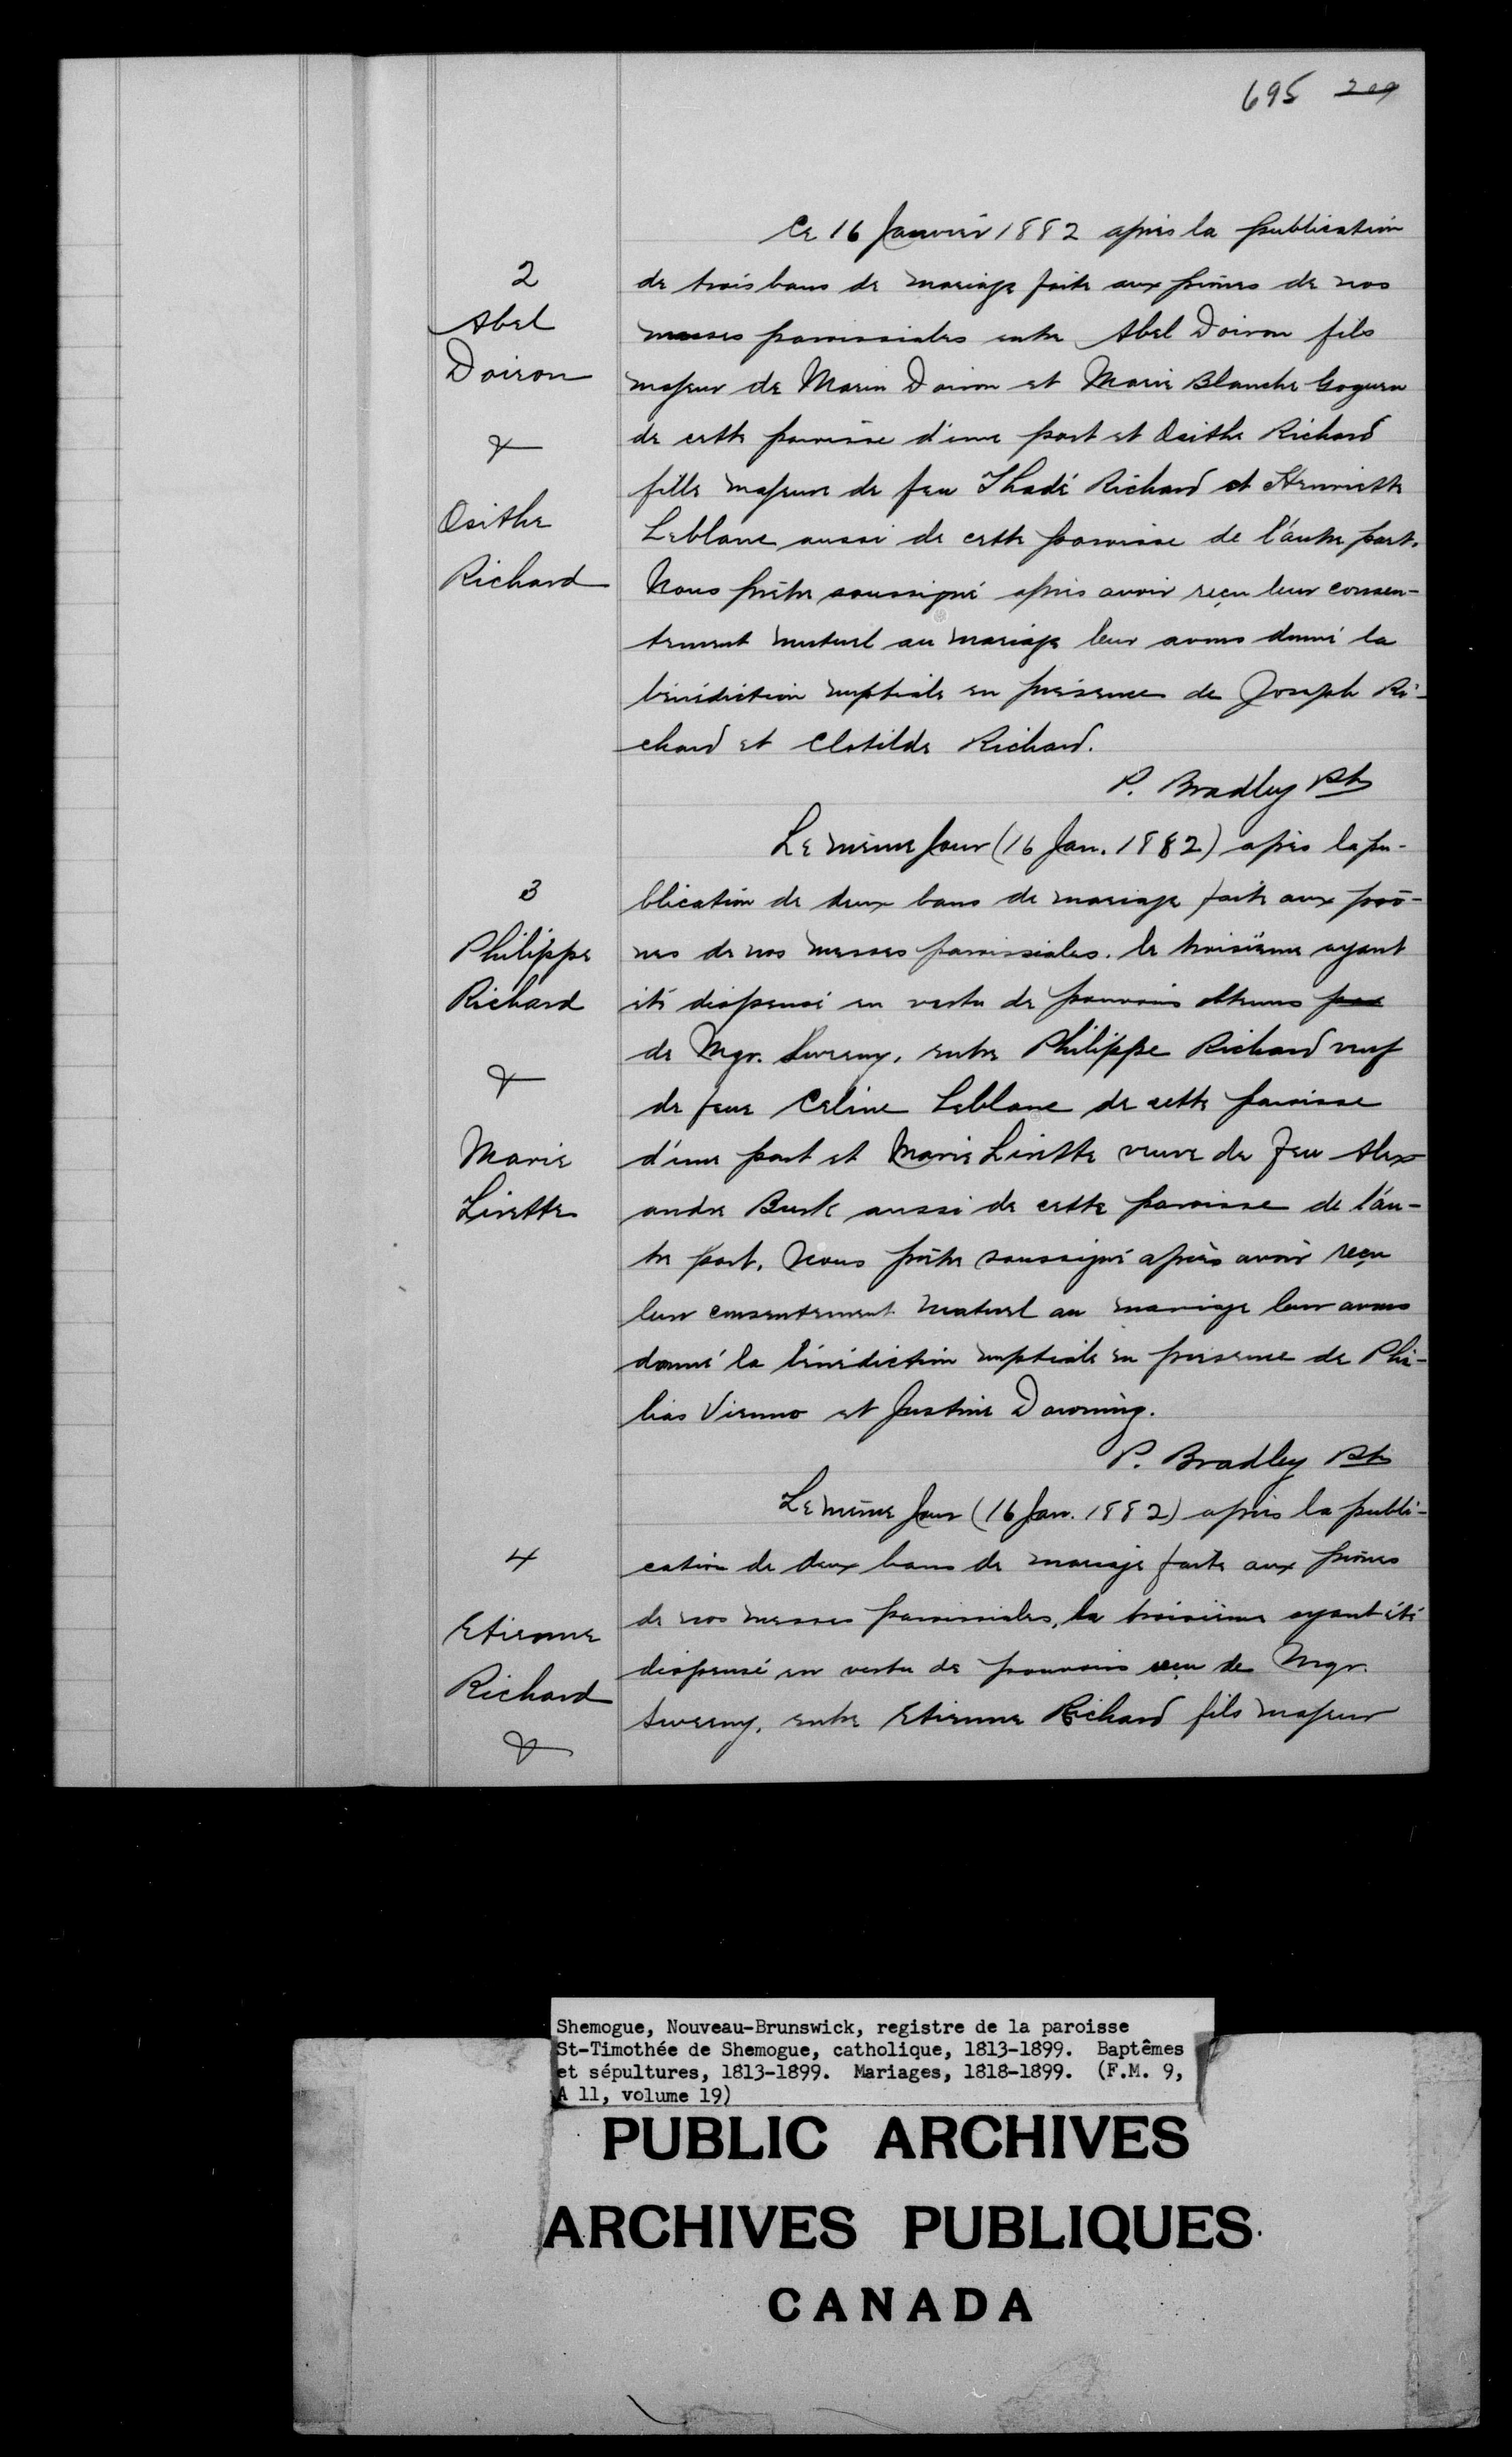 695 209
Ce 16 Janvier 1882 après la publication
2
de trois bans de mariage faite aux prônes de nos
Abel
messes paroissiales entre Abel Doiron fils
Doiron
majeur de Marin Doiron et Marie Blanche Goguen
&
de cette paroisse d'une part et Osithe Richard
fille majeure de feu Thadé Richard et Henriette
Osithe
Leblanc aussi de cette paroisse de l'autre part.
Richard
Nous prêtre soussigné après avoir reçu leur consen-
tement mutuel au mariage leur avons donné la
bénédiction nuptiale en présence de Joseph Ri-
chard et Clotilde Richard.
P. Bradley Ptr
Le même Jour (16 Jan. 1882) après la pu-
3
blication de deux bans de mariage faite aux prô-
Philippe
nes de nos messes paroissiales. le troisième ayant
Richard
été dispensé en vertu de pouvoirs obtenus par
&
de Mgr. Sweeny, entre Philippe Richard veuf
de feue Celine Leblanc de cette paroisse
Marie
d'une part et Marie Lirette veuve de feu Alex-
Lirette
andre Burk aussi de cette paroisse de l'au-
tre part. Nous prêtre soussigné après avoir reçu
leur consentement mutuel au mariage leur avons
donné la bénédiction nuptiale en présence de Phi-
lias Vienno et Justine Downing.
P. Bradley Ptr
Le même Jour (16 Jan. 1882) après la publi-
4
cation de deux bans de mariage faite aux prônes
Etienne
de nos messes paroissiales, le troisième ayant été
Richard
dispensé en vertu de pouvoirs reçu de Mgr.
&
Sweeny, entre Etienne Richard fils majeur
Shemogue, Nouveau-Brunswick, registre de la paroisse
St-Timothée de Shemogue, catholique, 1813-1899. Baptêmes
et sépultures, 1813-1899. Mariages, 1818-1899. (F.M. 9,
A 11, volume 19)
PUBLIC ARCHIVES
ARCHIVES PUBLIQUES
CANADA